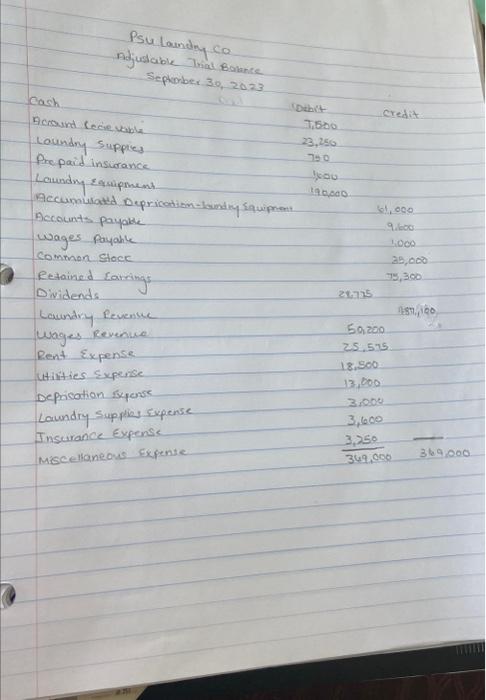 Psu Laundry Co
Adjustable Trial Balance
September 30, 2023
Debit Credit
Cash 7,500
Account Recievable 23,250
Laundry Supplies 750
Prepaid insurance
Laundry Equipment 190,000
Accumulated Deprication-laundry Equipment 61,000
Accounts payable 9,600
Wages Payable 1,000
Common Stock 35,000
Retained Earrings 75,300
Dividends
Laundry Revenue
Wages Revenue 50,200
Rent Expense 25,575
Utilities Expense 18,500
Deprication Expense 13,000
Laundry Supplies Expense 3,000
Insurance Expense 3,600
Miscellaneous Expense 3,250
369,000 369,000